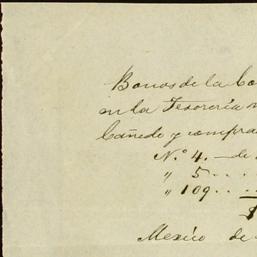 Bonos de la Co
en la Tesorería
Cañedo y compra
N.º 4. — de
" 5 . . .
" 109 . . .
$
Mexico de